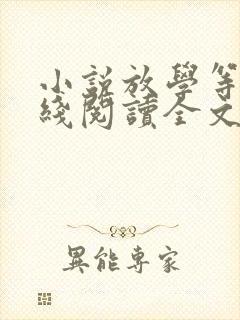 小説放學等
綫閱讀全文
異能專家